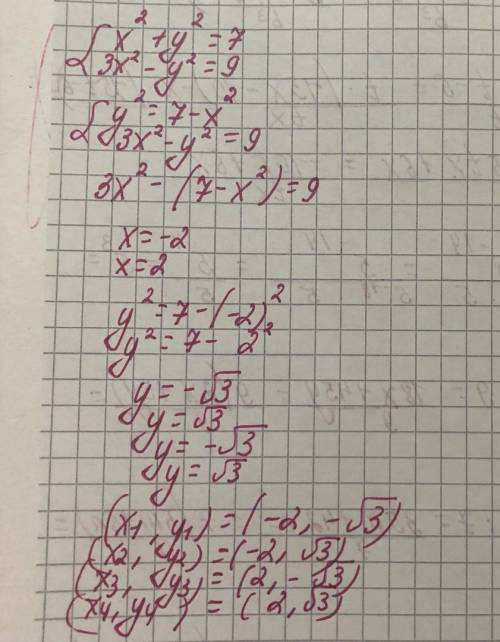 {x² + y² = 7
3x² - y² = 9
{y² = 7 - x²
3x² - y² = 9
3x² - (7 - x²) = 9
x = -2
x = 2
y² = 7 - (-2)²
y² = 7 - 2²
y = -√3
y = √3
y = -√3
y = √3
(x1, y1) = (-2, -√3)
(x2, y2) = (-2, √3)
(x3, y3) = (2, -√3)
(x4, y4) = (2, √3)